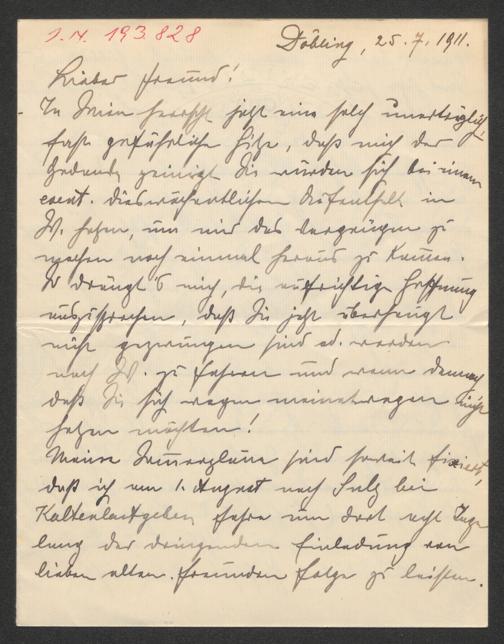 I.N. 193.828
Döbling, 25.7.1911.
Lieber Freund!
In Wien herrscht jetzt eine solch unerträglich,
fast gefährliche Hitze, daß mich der
Gedanke peinigt Sie würden sich bei einem
event. dieswöchentlichen Aufenthalt in
W. hetzen, um mir das Vergnügen zu
machen noch einmal heraus zu kommen.
So drängt's mich, die aufrichtige Hoffnung
auszusprechen, daß Sie jetzt überhaupt
nicht gezwungen sind od. werden
nach W. zu fahren und wenn dennoch
daß Sie sich wegen meinetwegen nicht
hetzen möchten!
Meine Sommerpläne sind soweit fixiert,
daß ich am 1. August nach Sulz bei
Kaltenleutgeben fahre um dort acht Tage
lang der dringenden Einladung von
lieben alten Freunden Folge zu leisten.